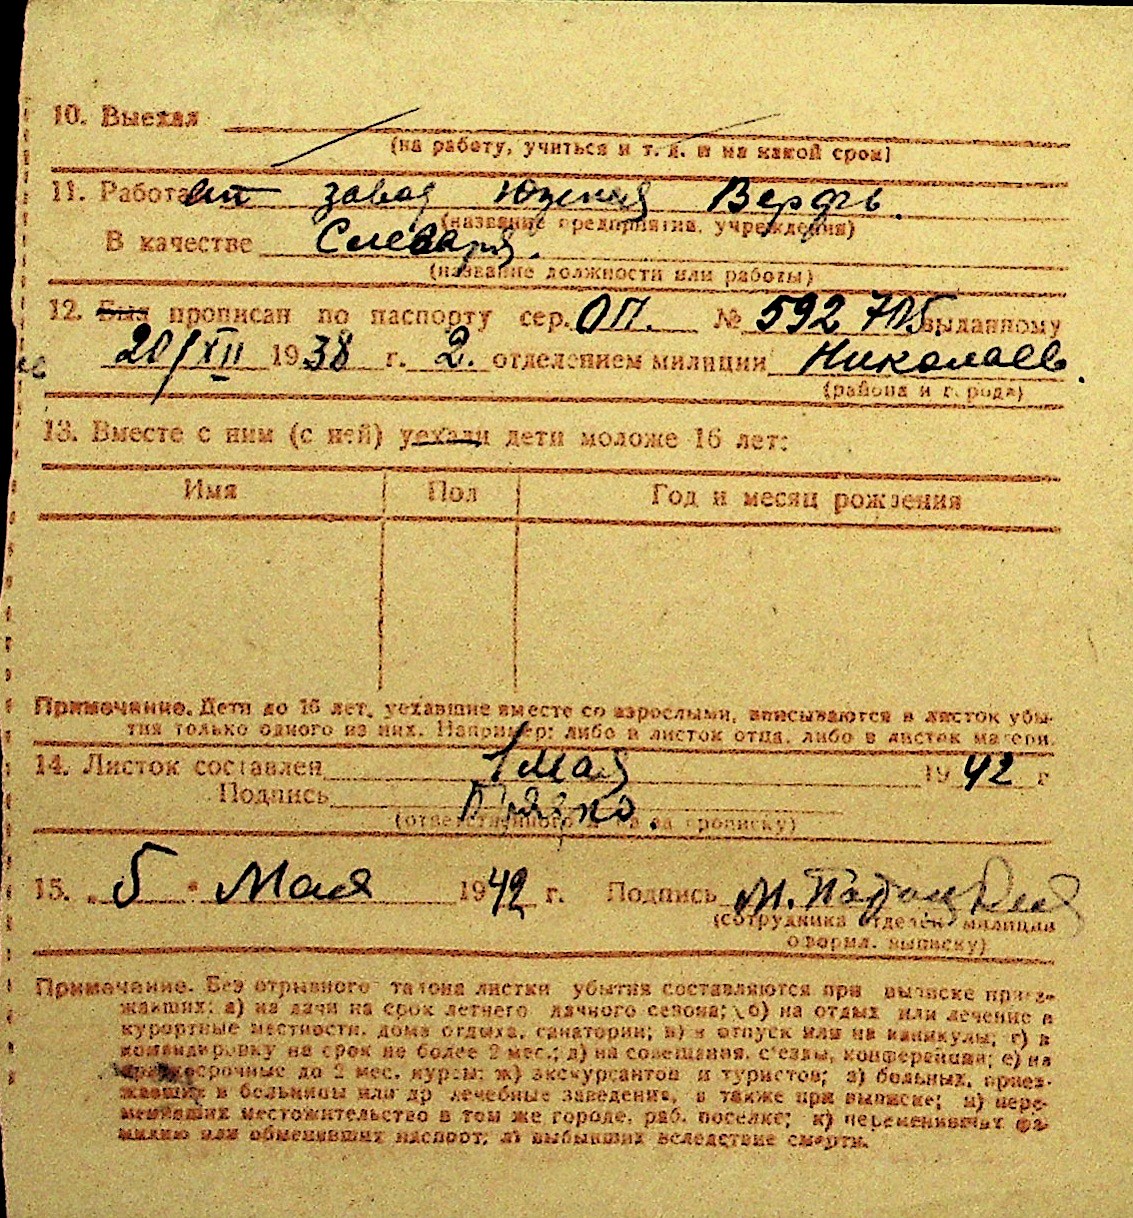 10. Выехал
(на работу, учиться и т. д. и на какой срок)
11. Работает завод Южная Верфь.
(название предприятия, учреждения)
В качестве Слесаря.
(название должности или работы)
12. Был прописан по паспорту сер. ОП. № 592705 выданному
20/XII 1938 г. 2. отделением милиции Николаев.
(района и города)
13. Вместе с ним (с ней) уехали дети моложе 16 лет:
Имя Пол Год и месяц рождения
Примечание. Дети до 16 лет, уехавшие вместе со взрослыми, вписываются в листок убы-
тия только одного из них. Например: либо в листок отца, либо в листок матери.
14. Листок составлен 1 мая 1942 г
Подпись
(ответственного за прописку)
15. 5 Мая 1942 г. Подпись М.
(сотрудника отделен. милиции
оформл. выписку)
Примечание. Без отрывного талона листки убытия составляются при выписке приез-
жавших: а) на дачи на срок летнего дачного сезона; б) на отдых или лечение в
курортные местности, дома отдыха, санатории; в) в отпуск или на каникулы; г) в
командировку на срок не более 2 мес.; д) на совещания, с'езды, конференции; е) на
краткосрочные до 2 мес. курсы; ж) экскурсантов и туристов; з) больных, приез-
жавших в больницы или др лечебные заведения, а также при выписке; и) пере-
менивших местожительство в том же городе, раб. поселке; к) переменивших фа-
милию или обменявших паспорт; л) выбывших вследствие смерти.